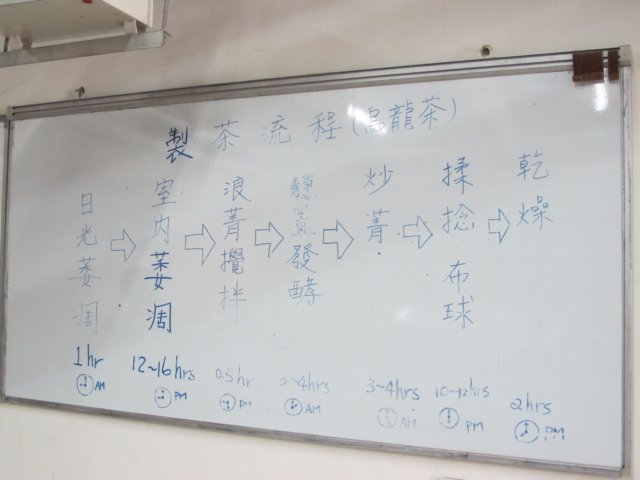 製茶流程(烏龍茶)
日光萎凋
室内萎凋
浪菁攪拌
靜置發酵
炒菁
揉捻 布球
乾燥
1hr
AM
12~16hrs
PM
0.5hr
PM
3~4hrs
AM
3~4hrs
AM
10~12hrs
PM
2hrs
PM